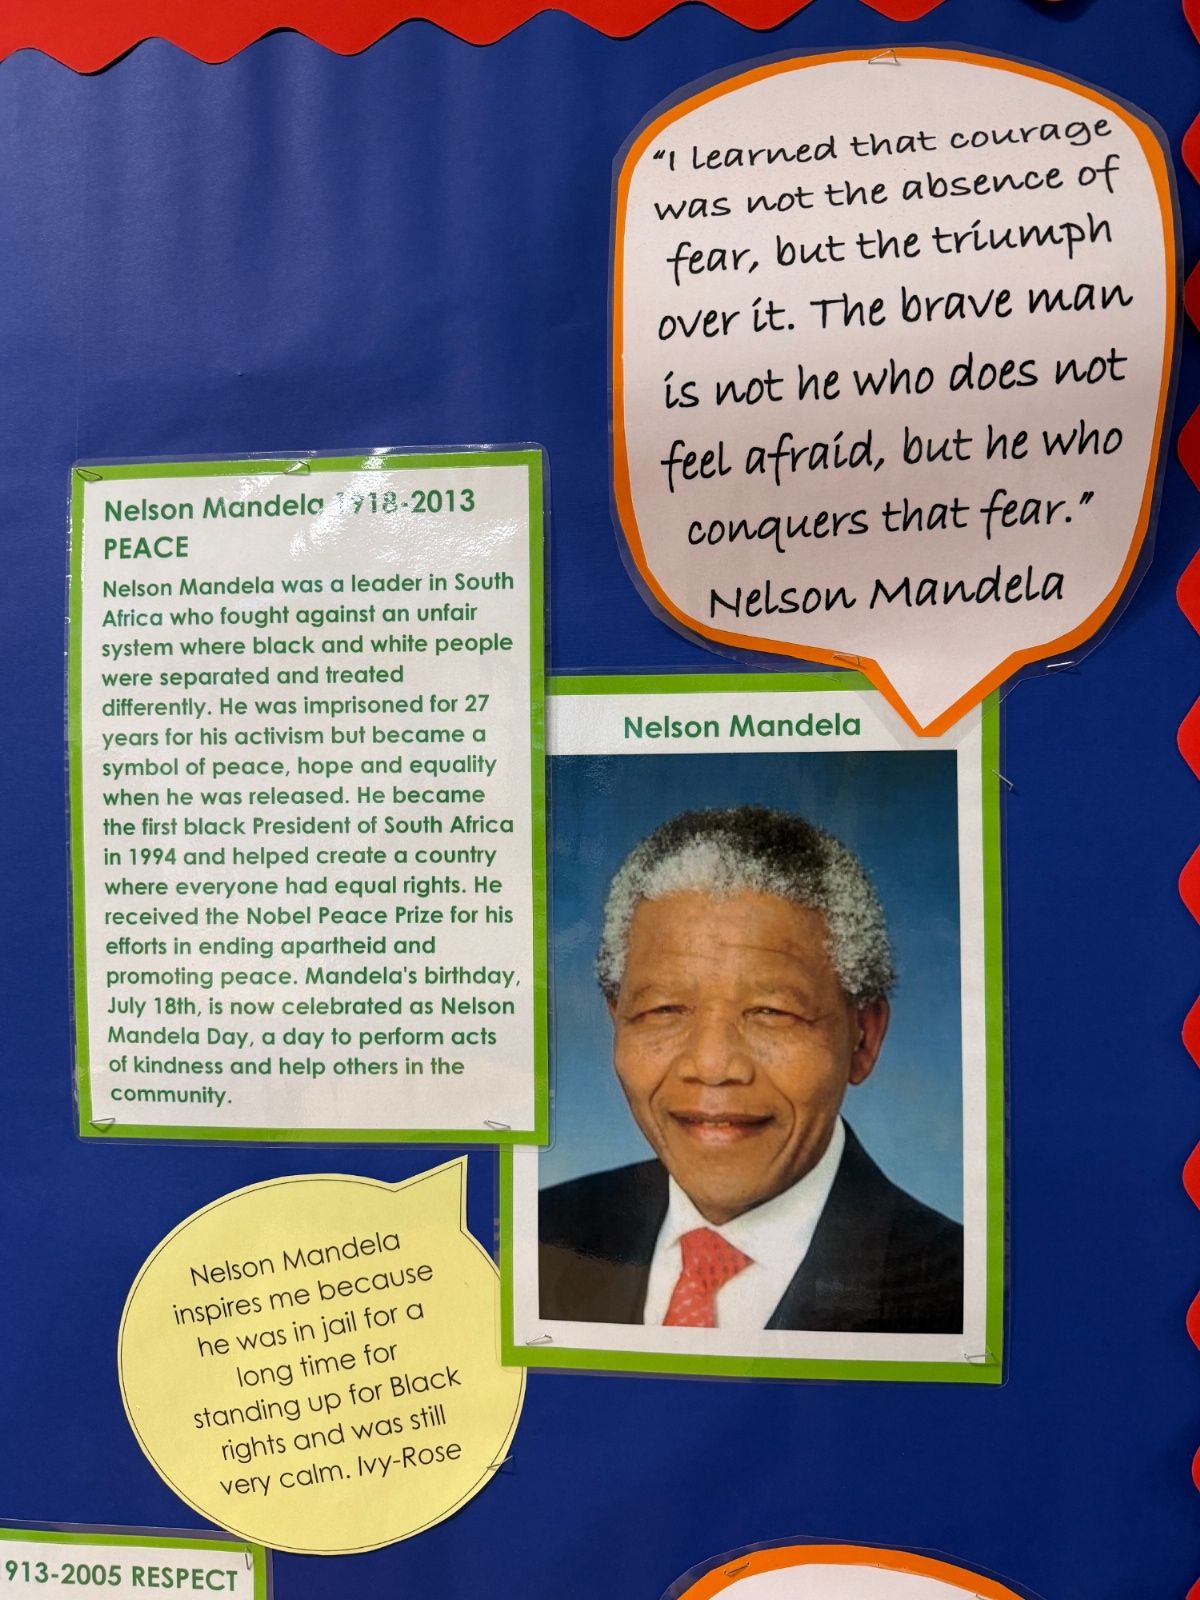 “I learned that courage
was not the absence of
fear, but the triumph
over it. The brave man
is not he who does not
feel afraid, but he who
conquers that fear.”
Nelson Mandela
Nelson Mandela 1918-2013
PEACE
Nelson Mandela was a leader in South
Africa who fought against an unfair
system where black and white people
were separated and treated
differently. He was imprisoned for 27
years for his activism but became a
symbol of peace, hope and equality
when he was released. He became
the first black President of South Africa
in 1994 and helped create a country
where everyone had equal rights. He
received the Nobel Peace Prize for his
efforts in ending apartheid and
promoting peace. Mandela's birthday,
July 18th, is now celebrated as Nelson
Mandela Day, a day to perform acts
of kindness and help others in the
community.
Nelson Mandela
Nelson Mandela
inspires me because
he was in jail for a
long time for
standing up for Black
rights and was still
very calm. Ivy-Rose
913-2005 RESPECT